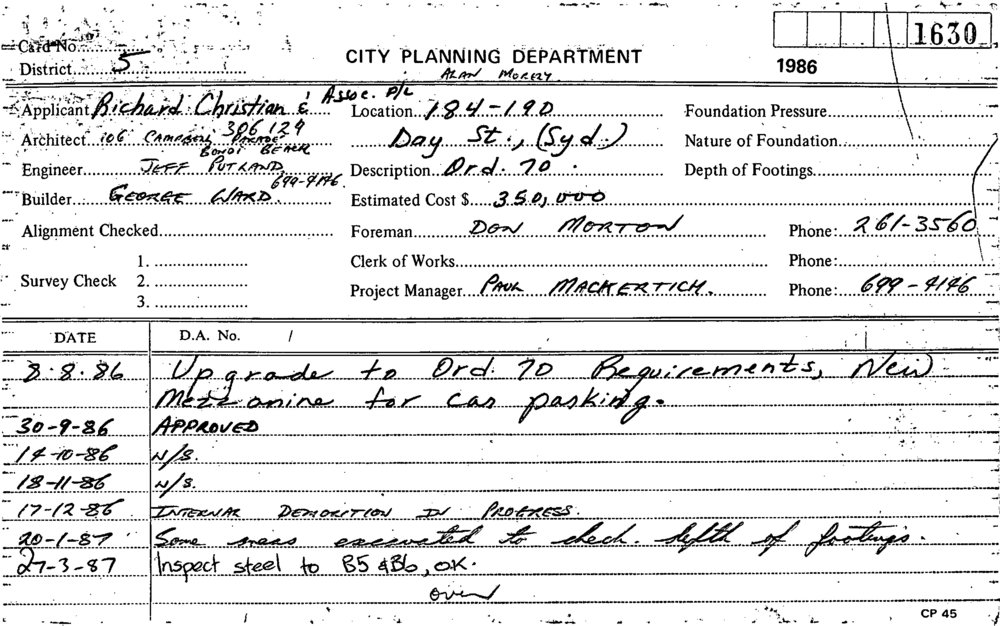 Card No.
1630
District 5
CITY PLANNING DEPARTMENT
1986
ALAN MORELY
Applicant Richard Christian & Assoc. P/L
Location 184-190
Foundation Pressure
306129
Architect 106 CAMPBELL PARADE
BONDI BEACH
Day St., (Syd.)
Nature of Foundation
Engineer JEFF PUTLAND
Description Ord. 70.
Depth of Footings
699-4146
Builder GEORGE WARD.
Estimated Cost $ 350,000
Alignment Checked
Foreman DON MORTON
Phone: 261-3560
1.
Clerk of Works
Phone:
Survey Check 2.
Project Manager PAUL MACKERTICH.
Phone: 699-4146
3.
DATE
D.A. No. /
8.8.86 Upgrade to Ord. 70 Requirements, New
Mezzanine for car parking.
30-9-86 APPROVED
14-10-86 N/S.
18-11-86 N/S.
17-12-86 INTERNAL DEMOLITION IN PROGRESS.
20-1-87 Some areas excavated to check depth of footings.
27-3-87 Inspect steel to B5 & B6, OK.
over
CP 45